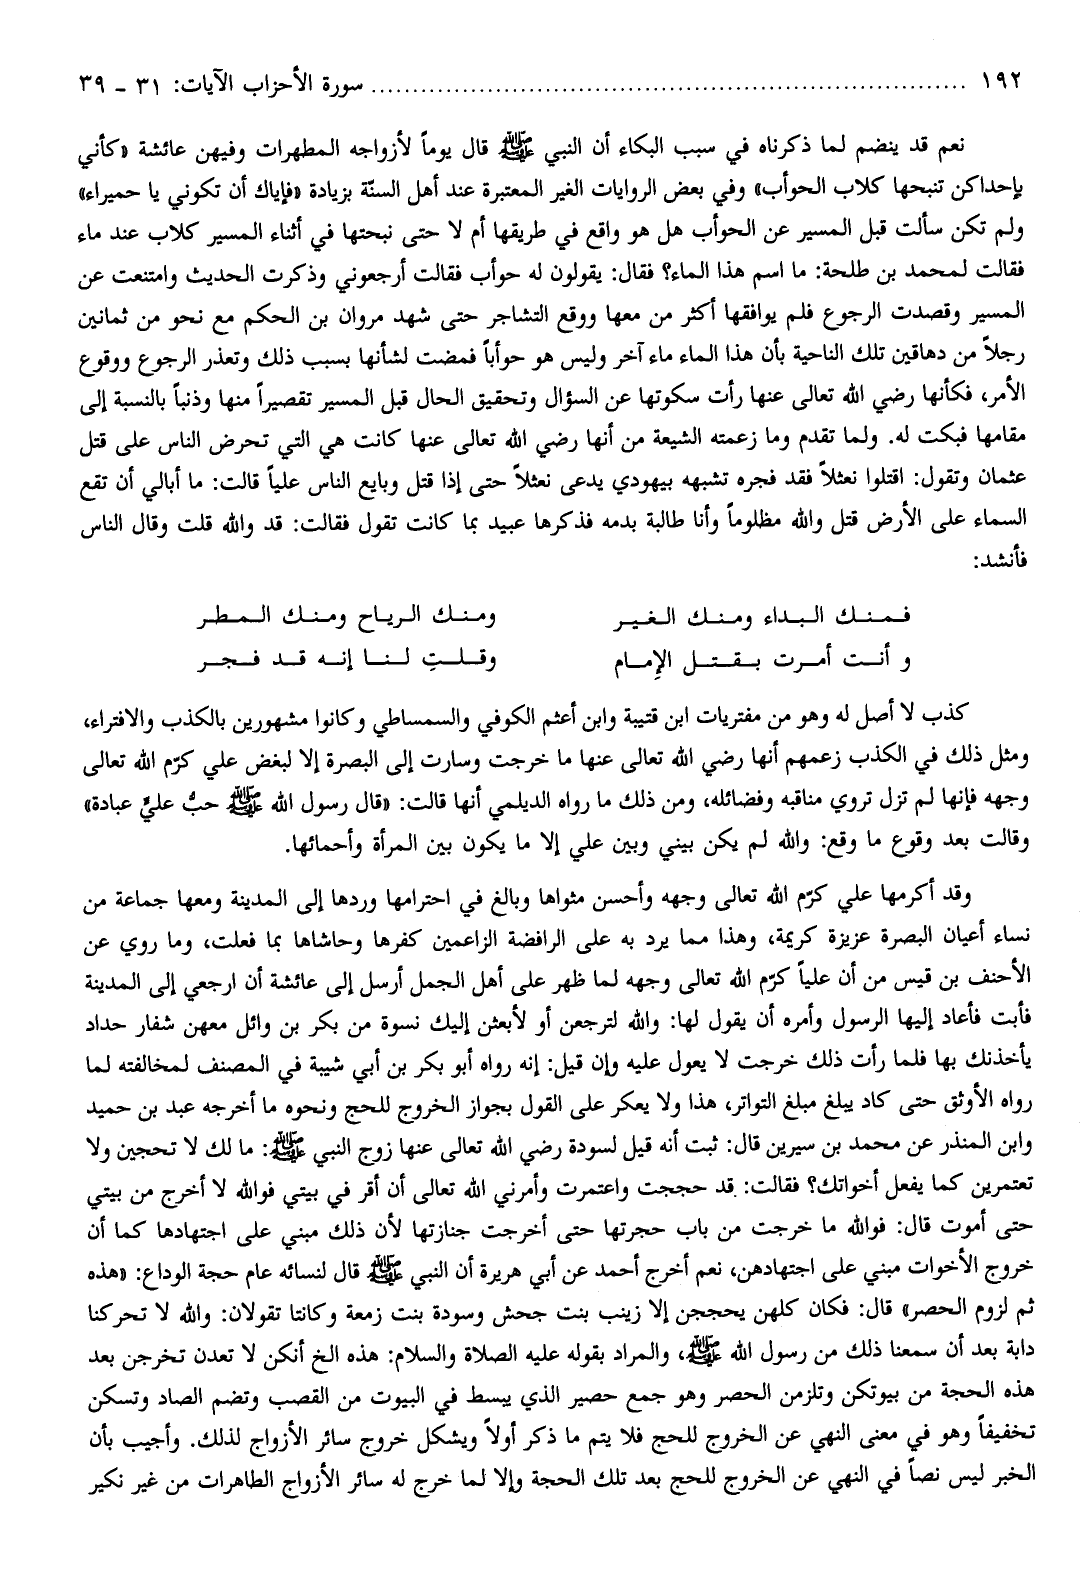 ١٩٢ ........................................................................ سورة الأحزاب الآيات: ٣١ - ٣٩
نعم قد ينضم لما ذكرناه في سبب البكاء أن النبي ﷺ قال يوماً لأزواجه المطهرات وفيهن عائشة «كأني
بإحداكن تنبحها كلاب الحوأب» وفي بعض الروايات الغير المعتبرة عند أهل السنّة بزيادة «فإياك أن تكوني يا حميراء»
ولم تكن سألت قبل المسير عن الحوأب هل هو واقع في طريقها أم لا حتى نبحتها في أثناء المسير كلاب عند ماء
فقالت لمحمد بن طلحة: ما اسم هذا الماء؟ فقال: يقولون له حوأب فقالت أرجعوني وذكرت الحديث وامتنعت عن
المسير وقصدت الرجوع فلم يوافقها أكثر من معها ووقع التشاجر حتى شهد مروان بن الحكم مع نحو من ثمانين
رجلاً من دهاقين تلك الناحية بأن هذا الماء ماء آخر وليس هو حوأباً فمضت لشأنها بسبب ذلك وتعذر الرجوع ووقوع
الأمر، فكأنها رضي الله تعالى عنها رأت سكوتها عن السؤال وتحقيق الحال قبل المسير تقصيراً منها وذنباً بالنسبة إلى
مقامها فبكت له. ولما تقدم وما زعمته الشيعة من أنها رضي الله تعالى عنها كانت هي التي تحرض الناس على قتل
عثمان وتقول: اقتلوا نعثلاً فقد فجره تشبهه بيهودي يدعى نعثلاً حتى إذا قتل وبايع الناس علياً قالت: ما أبالي أن تقع
السماء على الأرض قتل والله مظلوماً وأنا طالبة بدمه فذكرها عبيد بما كانت تقول فقالت: قد والله قلت وقال الناس
فأنشد:
فمنك البداء ومنك الغير ومنك الرياح ومنك المطر
و أنت أمرت بقتل الإِمام وقلتِ لنا إنه قد فجر
كذب لا أصل له وهو من مفتريات ابن قتيبة وابن أعثم الكوفي والسمساطي وكانوا مشهورين بالكذب والافتراء،
ومثل ذلك في الكذب زعمهم أنها رضي الله تعالى عنها ما خرجت وسارت إلى البصرة إلا لبغض علي كرّم الله تعالى
وجهه فإنها لم تزل تروي مناقبه وفضائله، ومن ذلك ما رواه الديلمي أنها قالت: «قال رسول الله ﷺ حبُّ عليٍّ عبادة»
وقالت بعد وقوع ما وقع: والله لم يكن بيني وبين علي إلا ما يكون بين المرأة وأحمائها.
وقد أكرمها علي كرّم الله تعالى وجهه وأحسن مثواها وبالغ في احترامها وردها إلى المدينة ومعها جماعة من
نساء أعيان البصرة عزيزة كريمة، وهذا مما يرد به على الرافضة الزاعمين كفرها وحاشاها بما فعلت، وما روي عن
الأحنف بن قيس من أن علياً كرّم الله تعالى وجهه لما ظهر على أهل الجمل أرسل إلى عائشة أن ارجعي إلى المدينة
فأبت فأعاد إليها الرسول وأمره أن يقول لها: والله لترجعن أو لأبعثن إليك نسوة من بكر بن وائل معهن شفار حداد
يأخذنك بها فلما رأت ذلك خرجت لا يعول عليه وإن قيل: إنه رواه أبو بكر بن أبي شيبة في المصنف لمخالفته لما
رواه الأوثق حتى كاد يبلغ مبلغ التواتر، هذا ولا يعكر على القول بجواز الخروج للحج ونحوه ما أخرجه عبد بن حميد
وابن المنذر عن محمد بن سيرين قال: ثبت أنه قيل لسودة رضي الله تعالى عنها زوج النبي ﷺ: ما لك لا تحجين ولا
تعتمرين كما يفعل أخواتك؟ فقالت: قد حججت واعتمرت وأمرني الله تعالى أن أقر في بيتي فوالله لا أخرج من بيتي
حتى أموت قال: فوالله ما خرجت من باب حجرتها حتى أخرجت جنازتها لأن ذلك مبني على اجتهادها كما أن
خروج الأخوات مبني على اجتهادهن، نعم أخرج أحمد عن أبي هريرة أن النبي ﷺ قال لنسائه عام حجة الوداع: «هذه
ثم لزوم الحصر» قال: فكان كلهن يحججن إلا زينب بنت جحش وسودة بنت زمعة وكانتا تقولان: والله لا تحركنا
دابة بعد أن سمعنا ذلك من رسول الله ﷺ، والمراد بقوله عليه الصلاة والسلام: هذه الخ أنكن لا تعدن تخرجن بعد
هذه الحجة من بيوتكن وتلزمن الحصر وهو جمع حصير الذي يبسط في البيوت من القصب وتضم الصاد وتسكن
تخفيفاً وهو في معنى النهي عن الخروج للحج فلا يتم ما ذكر أولاً ويشكل خروج سائر الأزواج لذلك. وأجيب بأن
الخبر ليس نصاً في النهي عن الخروج للحج بعد تلك الحجة وإلا لما خرج له سائر الأزواج الطاهرات من غير نكير